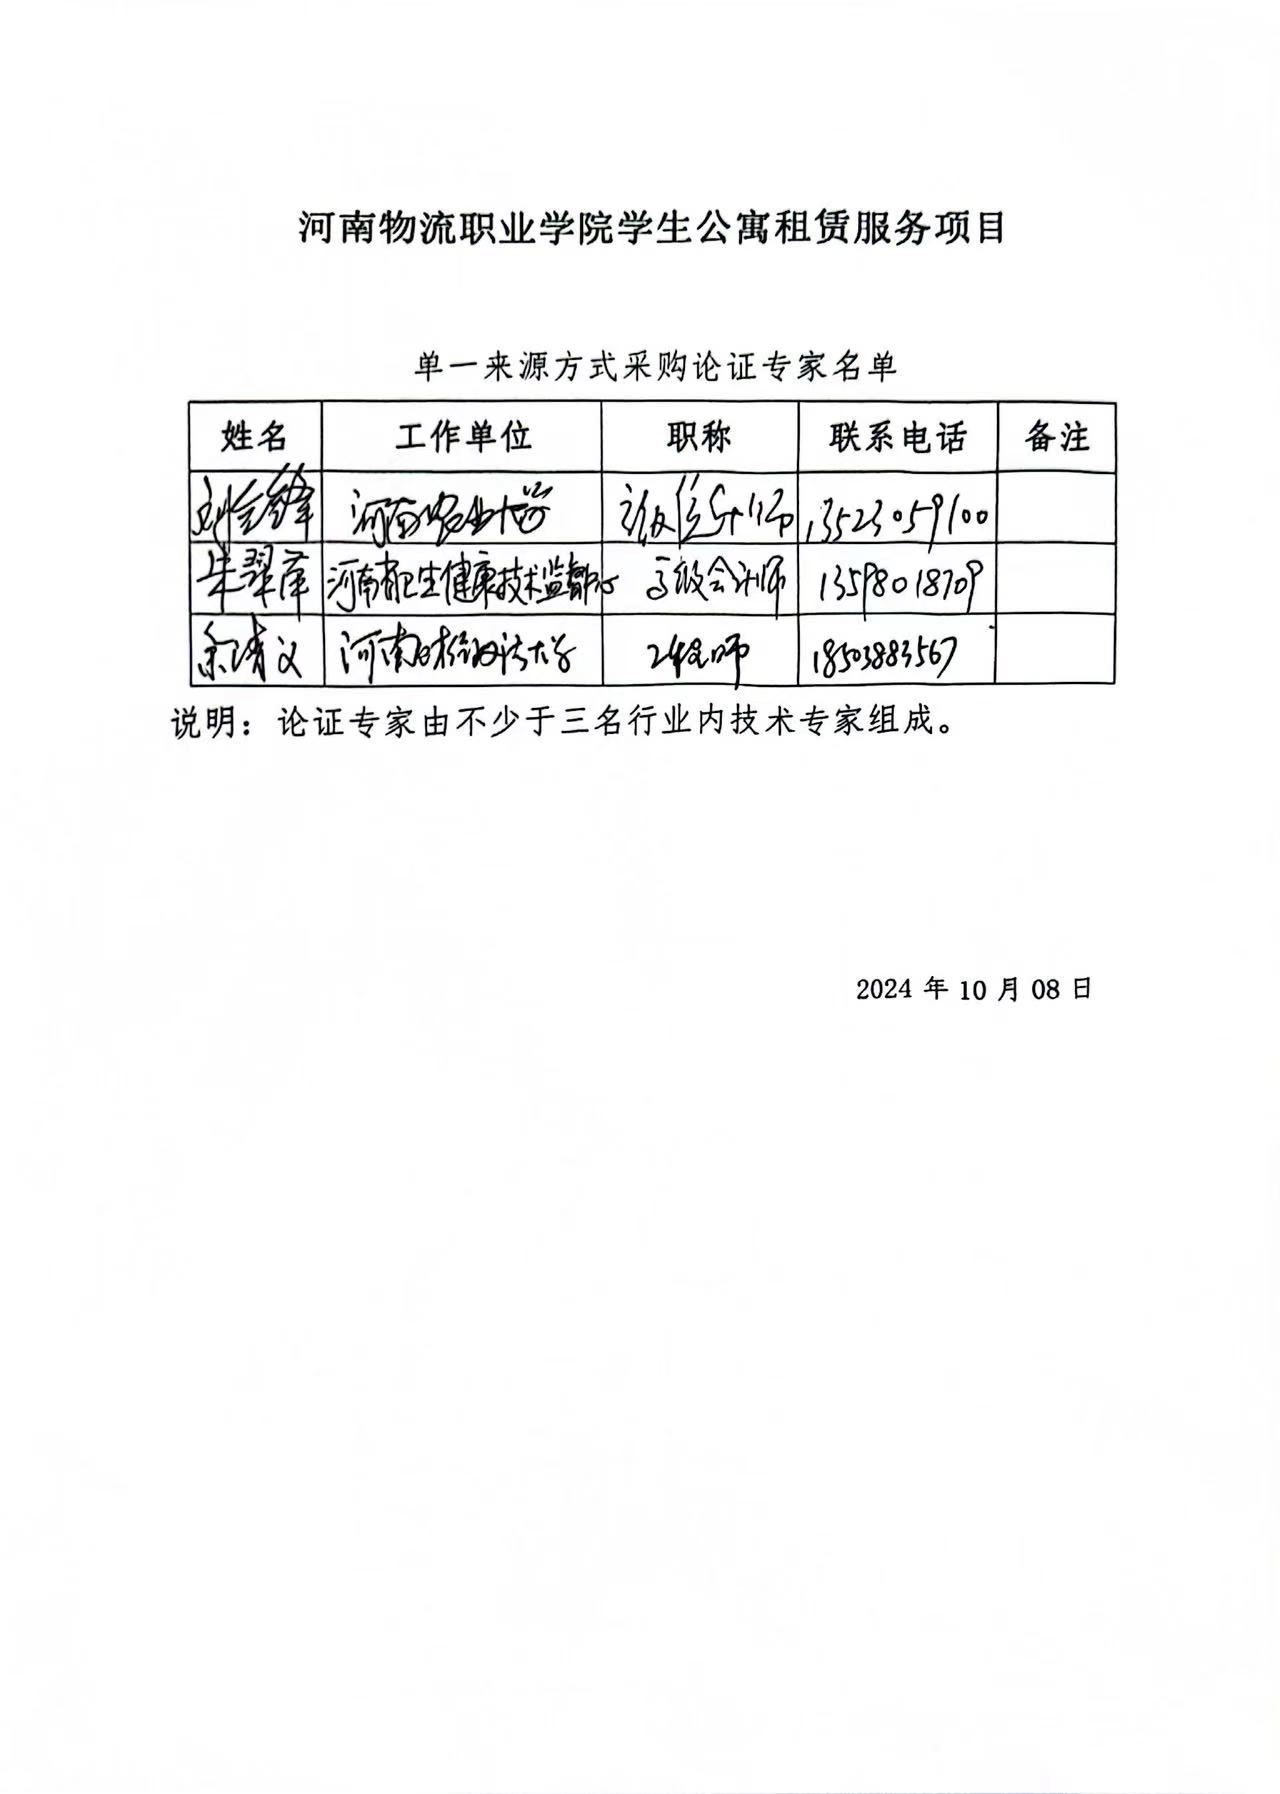 河南物流职业学院学生公寓租赁服务项目
单一来源方式采购论证专家名单
姓名 工作单位 职称 联系电话 备注
河南农业大学 高级会计师 13523059100
朱翠萍 河南省卫生健康技术监督中心 高级会计师 13598018709
河南财经政法大学 工程师 18503883567
说明：论证专家由不少于三名行业内技术专家组成。
2024 年 10 月 08 日